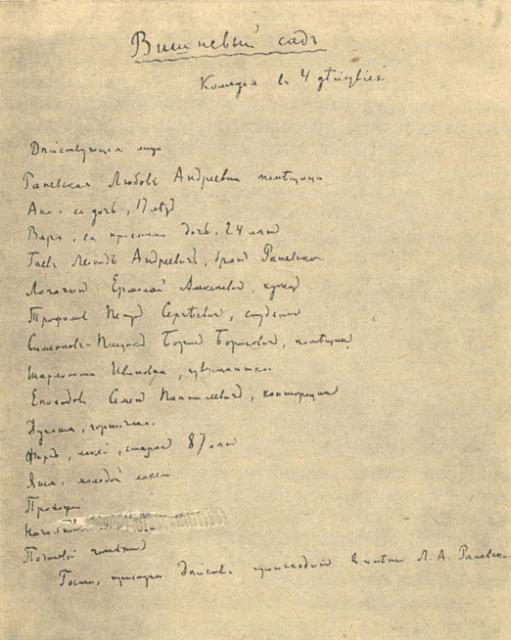 Вишневый садъ
Комедiя въ 4 дѣйствiяхъ
Дѣйствующiя лица
Раневская Любовь Андреевна помѣщица
Аня, ея дочь, 17 лѣтъ
Варя, ея прiемная дочь, 24 лѣтъ
Гаевъ Леонидъ Андреевичъ, братъ Раневской
Лопахинъ Ермолай Алексѣевичъ, купецъ
Трофимовъ Петръ Сергѣевичъ, студентъ
Симеоновъ-Пищикъ Борисъ Борисовичъ, помѣщикъ
Шарлотта Ивановна, гувернантка
Епиходовъ Семенъ Пантелеевичъ, конторщикъ
Дуняша, горничная.
Фирсъ, лакей, старикъ 87 лѣтъ
Яша, молодой лакей
Прохожiй
Почтовый чиновникъ
Гости, прислуга Дѣйствiе происходитъ въ имѣнiи Л. А. Раневской